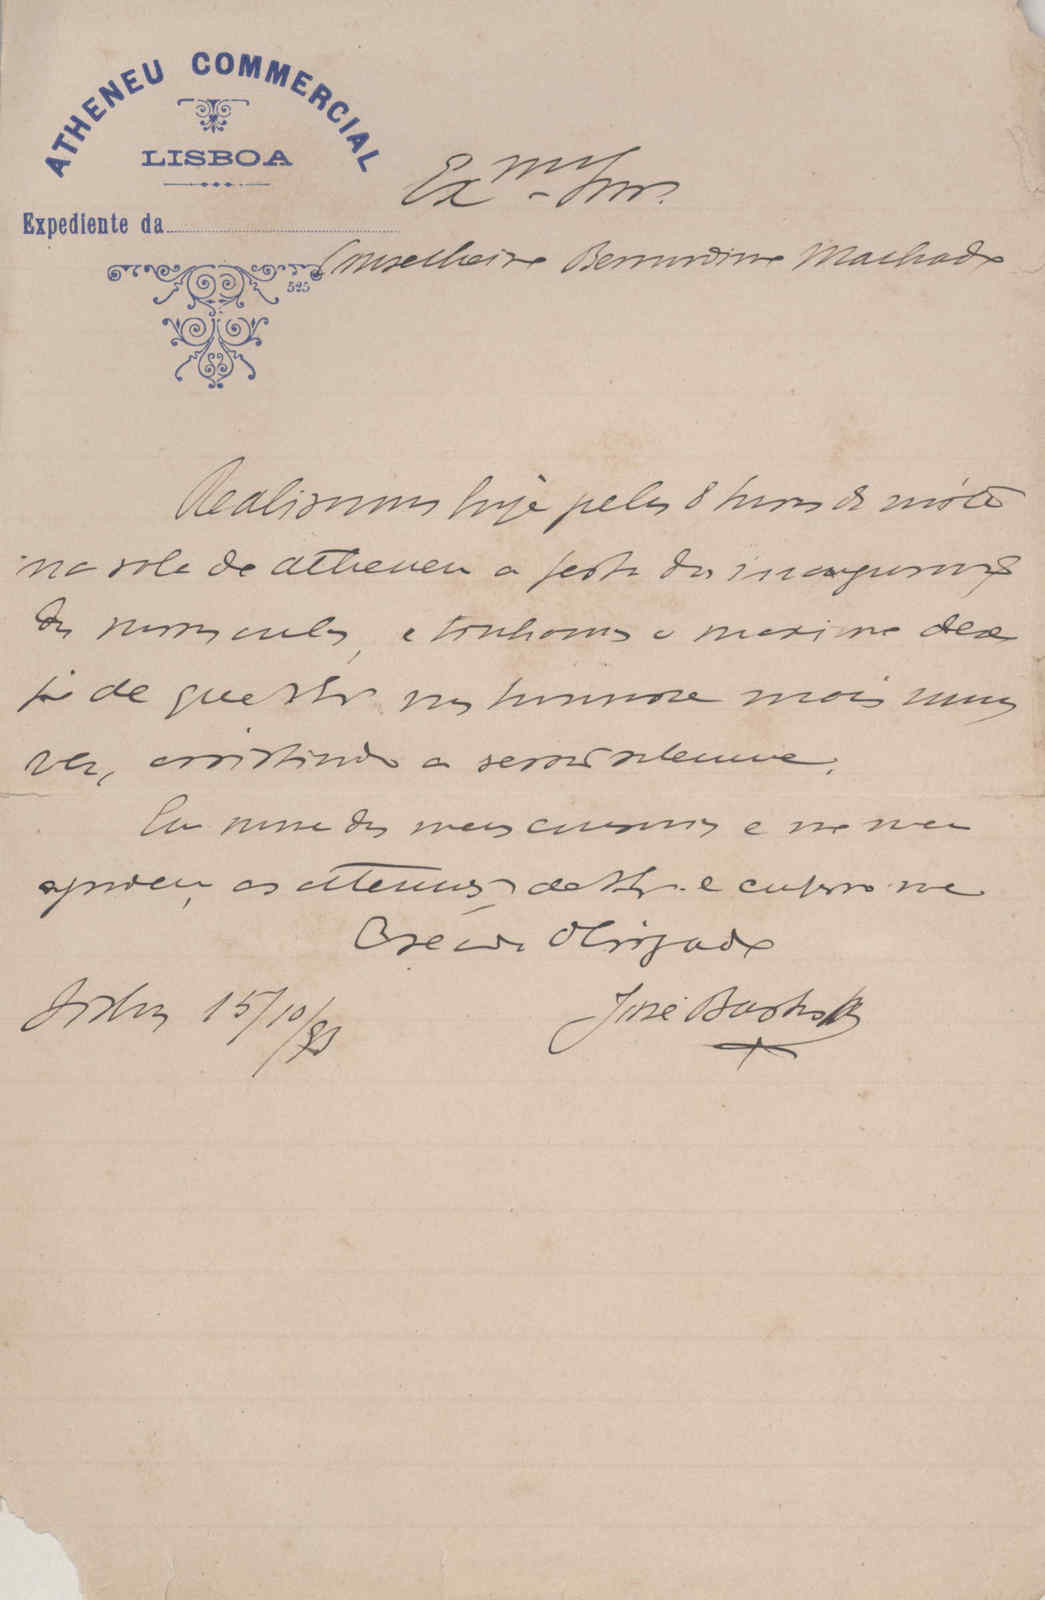 ATHENEU COMMERCIAL
LISBOA
Expediente da
525
Exmo Snr.
Conselheiro Bernardino Machado
Realisamos hoje pelas 8 horas da noite
na sala do atheneu a festa da inauguração
das nossas aulas, e tinhamos o maximo dese
jo de que V. Exa nos honrasse mais uma
vez, assistindo a sessão solemne.
Em nome dos meus e no meu
as de V. Exa e
Obrigado
Lisboa 15/10/93
José Bastos